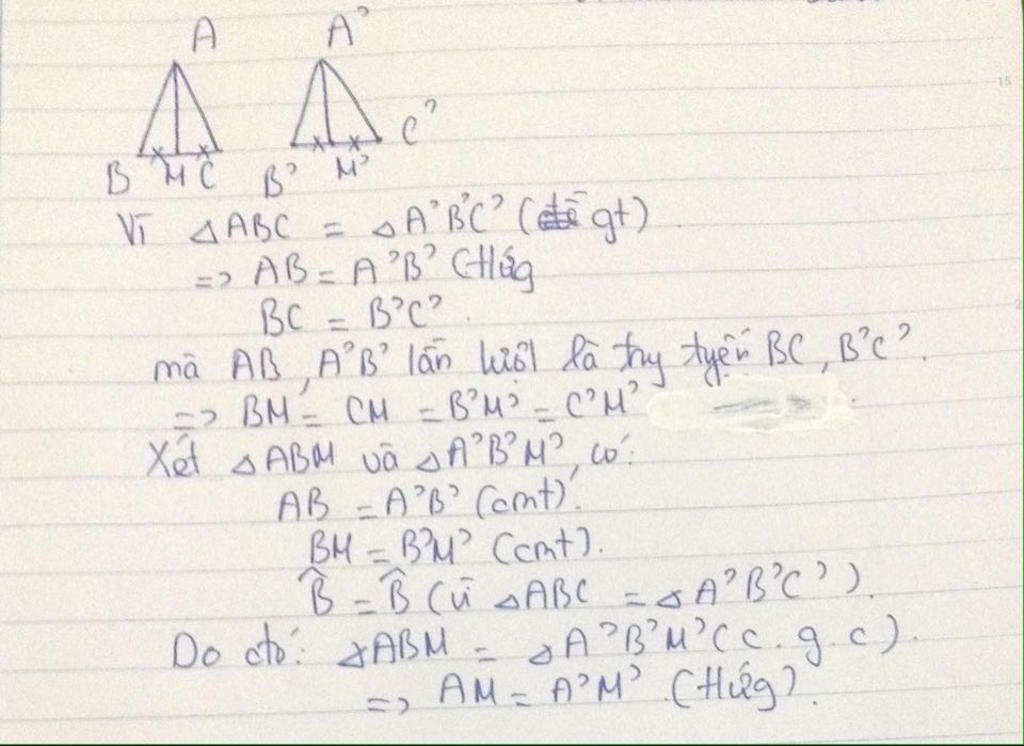 A A'
B M C B' M' C'
Vì △ABC = △A'B'C' (gt)
=> AB = A'B' (tứg
BC = B'C'.
mà AB, A'B' lần lượt là try tyến BC, B'C'.
=> BM = CM = B'M' = C'M'
Xét △ABM và △A'B'M', có:
AB = A'B' (cmt).
BM = B'M' (cmt).
B̂ = B̂ (vì △ABC = △A'B'C').
Do đó: △ABM = △A'B'M' (c.g.c).
=> AM = A'M' (tứg).
15